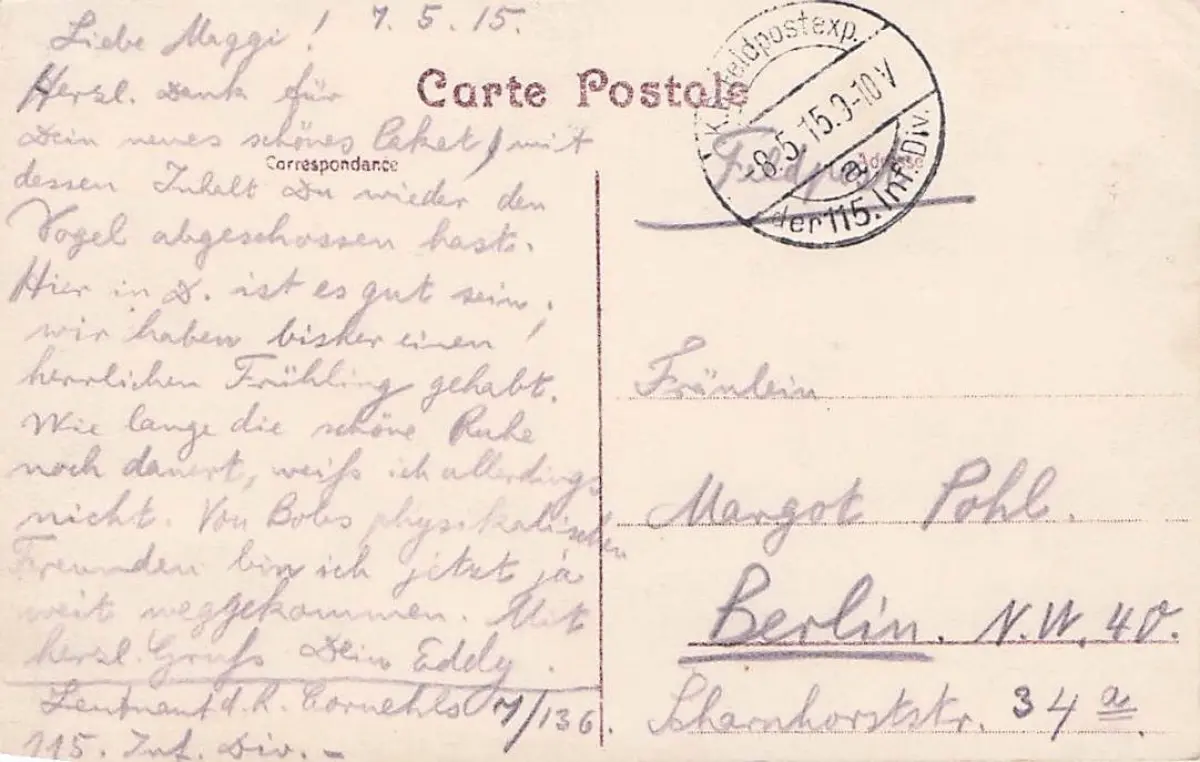 Liebe Maggi! 7.5.15.
Herzl. Dank für
Dein neues schönes Paket, mit
dessen Inhalt Du wieder den
Vogel abgeschossen hast.
Hier in D. ist es gut sein,
wir haben bisher einen
herrlichen Frühling gehabt.
Wie lange die schöne Ruhe
noch dauert, weiß ich allerdings
nicht. Von Bobs physikalischen
Freunden bin ich jetzt ja
weit weggekommen. Mit
herzl. Gruß Dein Eddy.
Leutnant d. R. Cornehls 7/136.
115. Inf. Div. -
Carte Postale
Correspondance
Adresse
Feldpost
K. Feldpostexp.
-8.5.15.9-10V
a
der 115. Inf. Div.
Fräulein
Margot Pohl.
Berlin. N.W. 40.
Scharnhorststr. 34a.